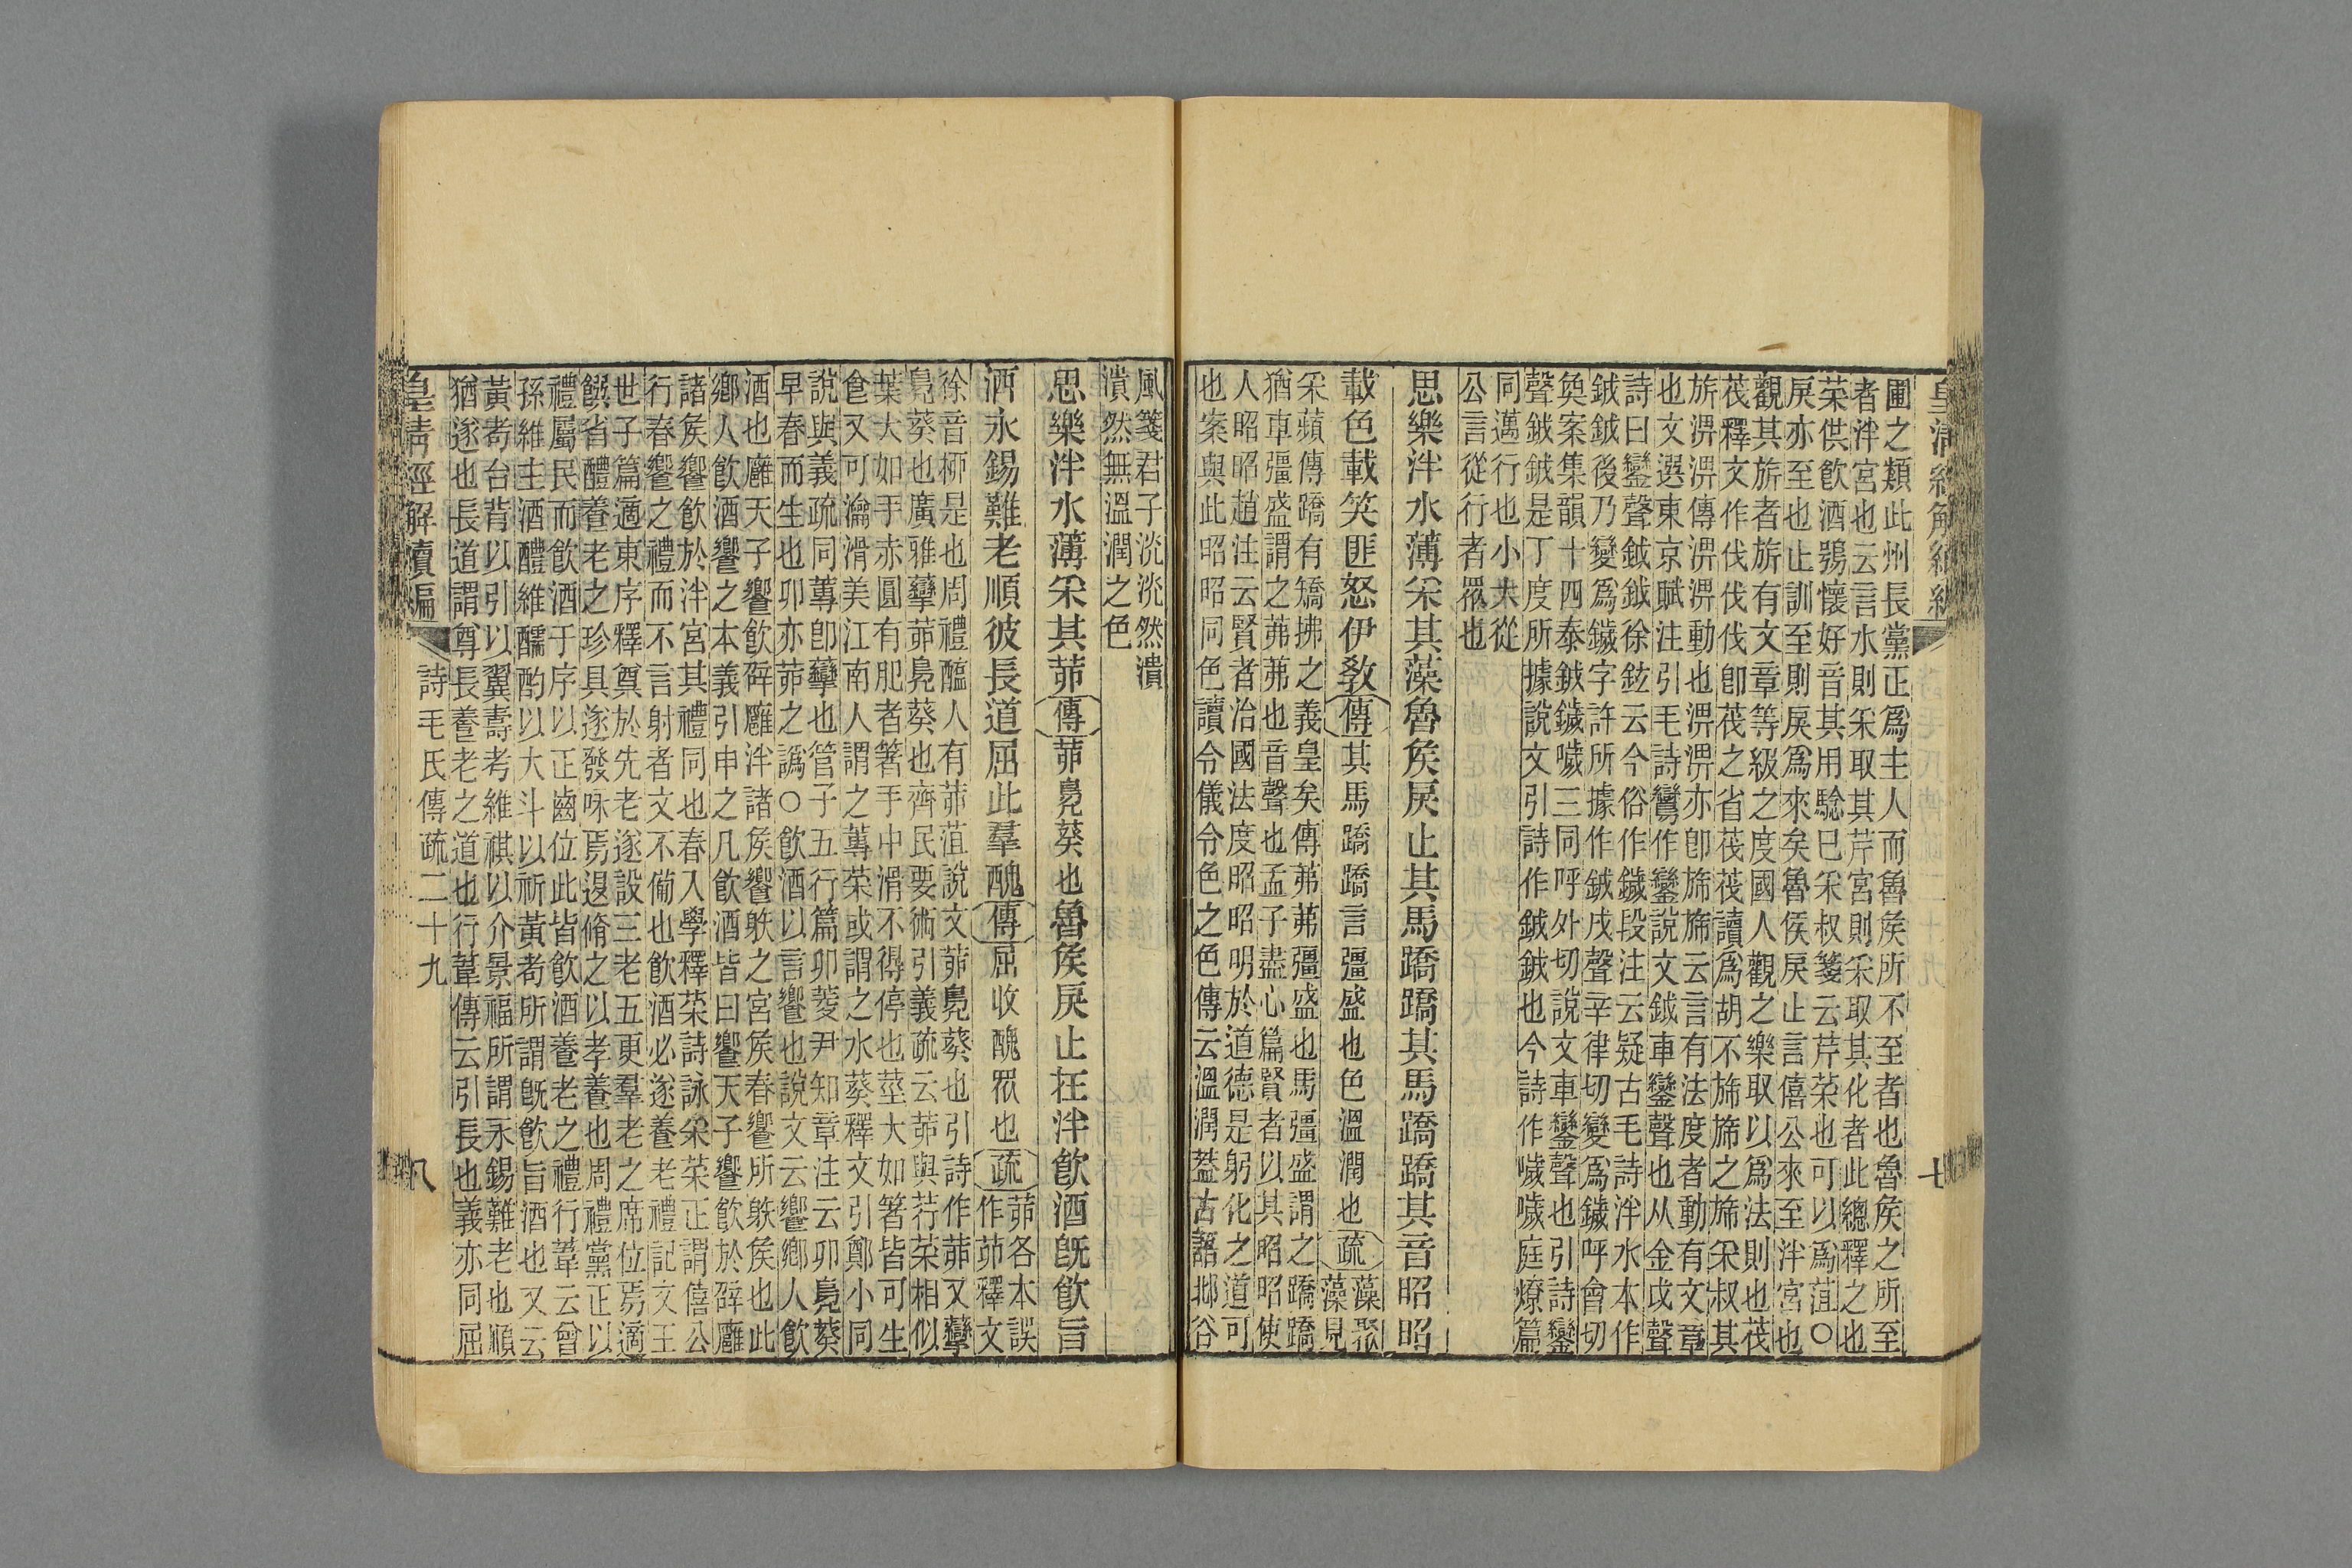 皇清經解續編
七
圃之類此州長黨正爲主人而魯矦所不至者也魯矦之所至
者泮宮也云言水則采取其芹宮則采取其化者此總釋之也
菜供飮酒鴞懷好音其用騐巳采叔箋云芹菜也可以爲菹○
戾亦至也止訓至則戾爲來矣魯侯戾止言僖公來至泮宮也
觀其旂者旂有文章等級之度國人觀之樂取以爲法則也茷
茷釋文作伐伐伐卽茷之省茷茷讀爲胡不旆旆之旆采叔其
旂淠淠傳淠淠動也淠淠亦卽旆旆云言有法度者動有文章
也文選東京賦注引毛詩鸞作鑾說文鉞車鑾聲也从金戉聲
詩曰鑾聲鉞鉞徐鉉云今俗作鐬段注云疑古毛詩泮水本作
鉞鉞後乃變爲鐬字許所據作鉞戌聲辛律切變爲鐬呼會切
奐案集韻十四泰鉞鐬噦三同呼外切說文車鑾聲也引詩鑾
聲鉞鉞是丁度所據說文引詩作鉞鉞也今詩作噦噦庭燎篇
同邁行也小大從
公言從行者眾也
思樂泮水薄采其藻魯矦戾止其馬蹻蹻其馬蹻蹻其音昭昭
載色載笑匪怒伊敎傳其馬蹻蹻言彊盛也色溫潤也疏藻聚藻見
采蘋傳蹻有矯拂之義皇矣傳茀茀彊盛也馬彊盛謂之蹻蹻
猶車彊盛謂之茀茀也音聲也孟子盡心篇賢者以其昭昭使
人昭昭趙注云賢者治國法度昭昭明於道德是躬化之道可
也案與此昭昭同色讀令儀令色之色傳云溫潤葢古語邶谷
風箋君子洸洸然潰
潰然無溫潤之色
思樂泮水薄采其茆傳茆鳧葵也魯矦戾止在泮飮酒旣飮旨
酒永錫難老順彼長道屈此羣醜傳屈收醜眾也疏茆各本誤作茆釋文
徐音柳是也周禮醢人有茆菹說文茆鳧葵也引詩作茆又孿
鳧葵也廣雅孿茆鳧葵也齊民要術引義疏云茆與荇菜相似
葉大如手赤圓有肥者箸手中滑不得停也莖大如箸皆可生
食又可瀹滑美江南人謂之蓴菜或謂之水葵釋文引鄭小同
說與義疏同蓴卽孿也管子五行篇卯菱尹知章注云卯鳧葵
早春而生也卯亦茆之譌○飮酒以言饗也說文云饗鄉人飮
酒也廱天子饗飮辟廱泮諸矦饗䠶之宮矦春饗所䠶矦也此
鄉人飮酒饗之本義引申之凡飮酒皆曰饗天子饗飮於辟廱
諸矦饗飮於泮宮其禮同也春入學釋菜詩詠采菜正謂僖公
行春饗之禮而不言射者文不備也飮酒必遂養老禮記文王
世子篇適東序釋奠於先老遂設三老五更羣老之席位焉適
饌省醴養老之珍具遂發咏焉退脩之以孝養也周禮黨正以
禮屬民而飮酒于序以正齒位此皆飮酒養老之禮行葦云曾
孫維主酒醴維醹酌以大斗以祈黃耇所謂旣飮旨酒也又云
黃耇台背以引以翼壽考維祺以介景福所謂永錫難老也順
猶遂也長道謂尊長養老之道也行葦傳云引長也義亦同屈
皇清經解續編
詩毛氏傳疏二十九
八